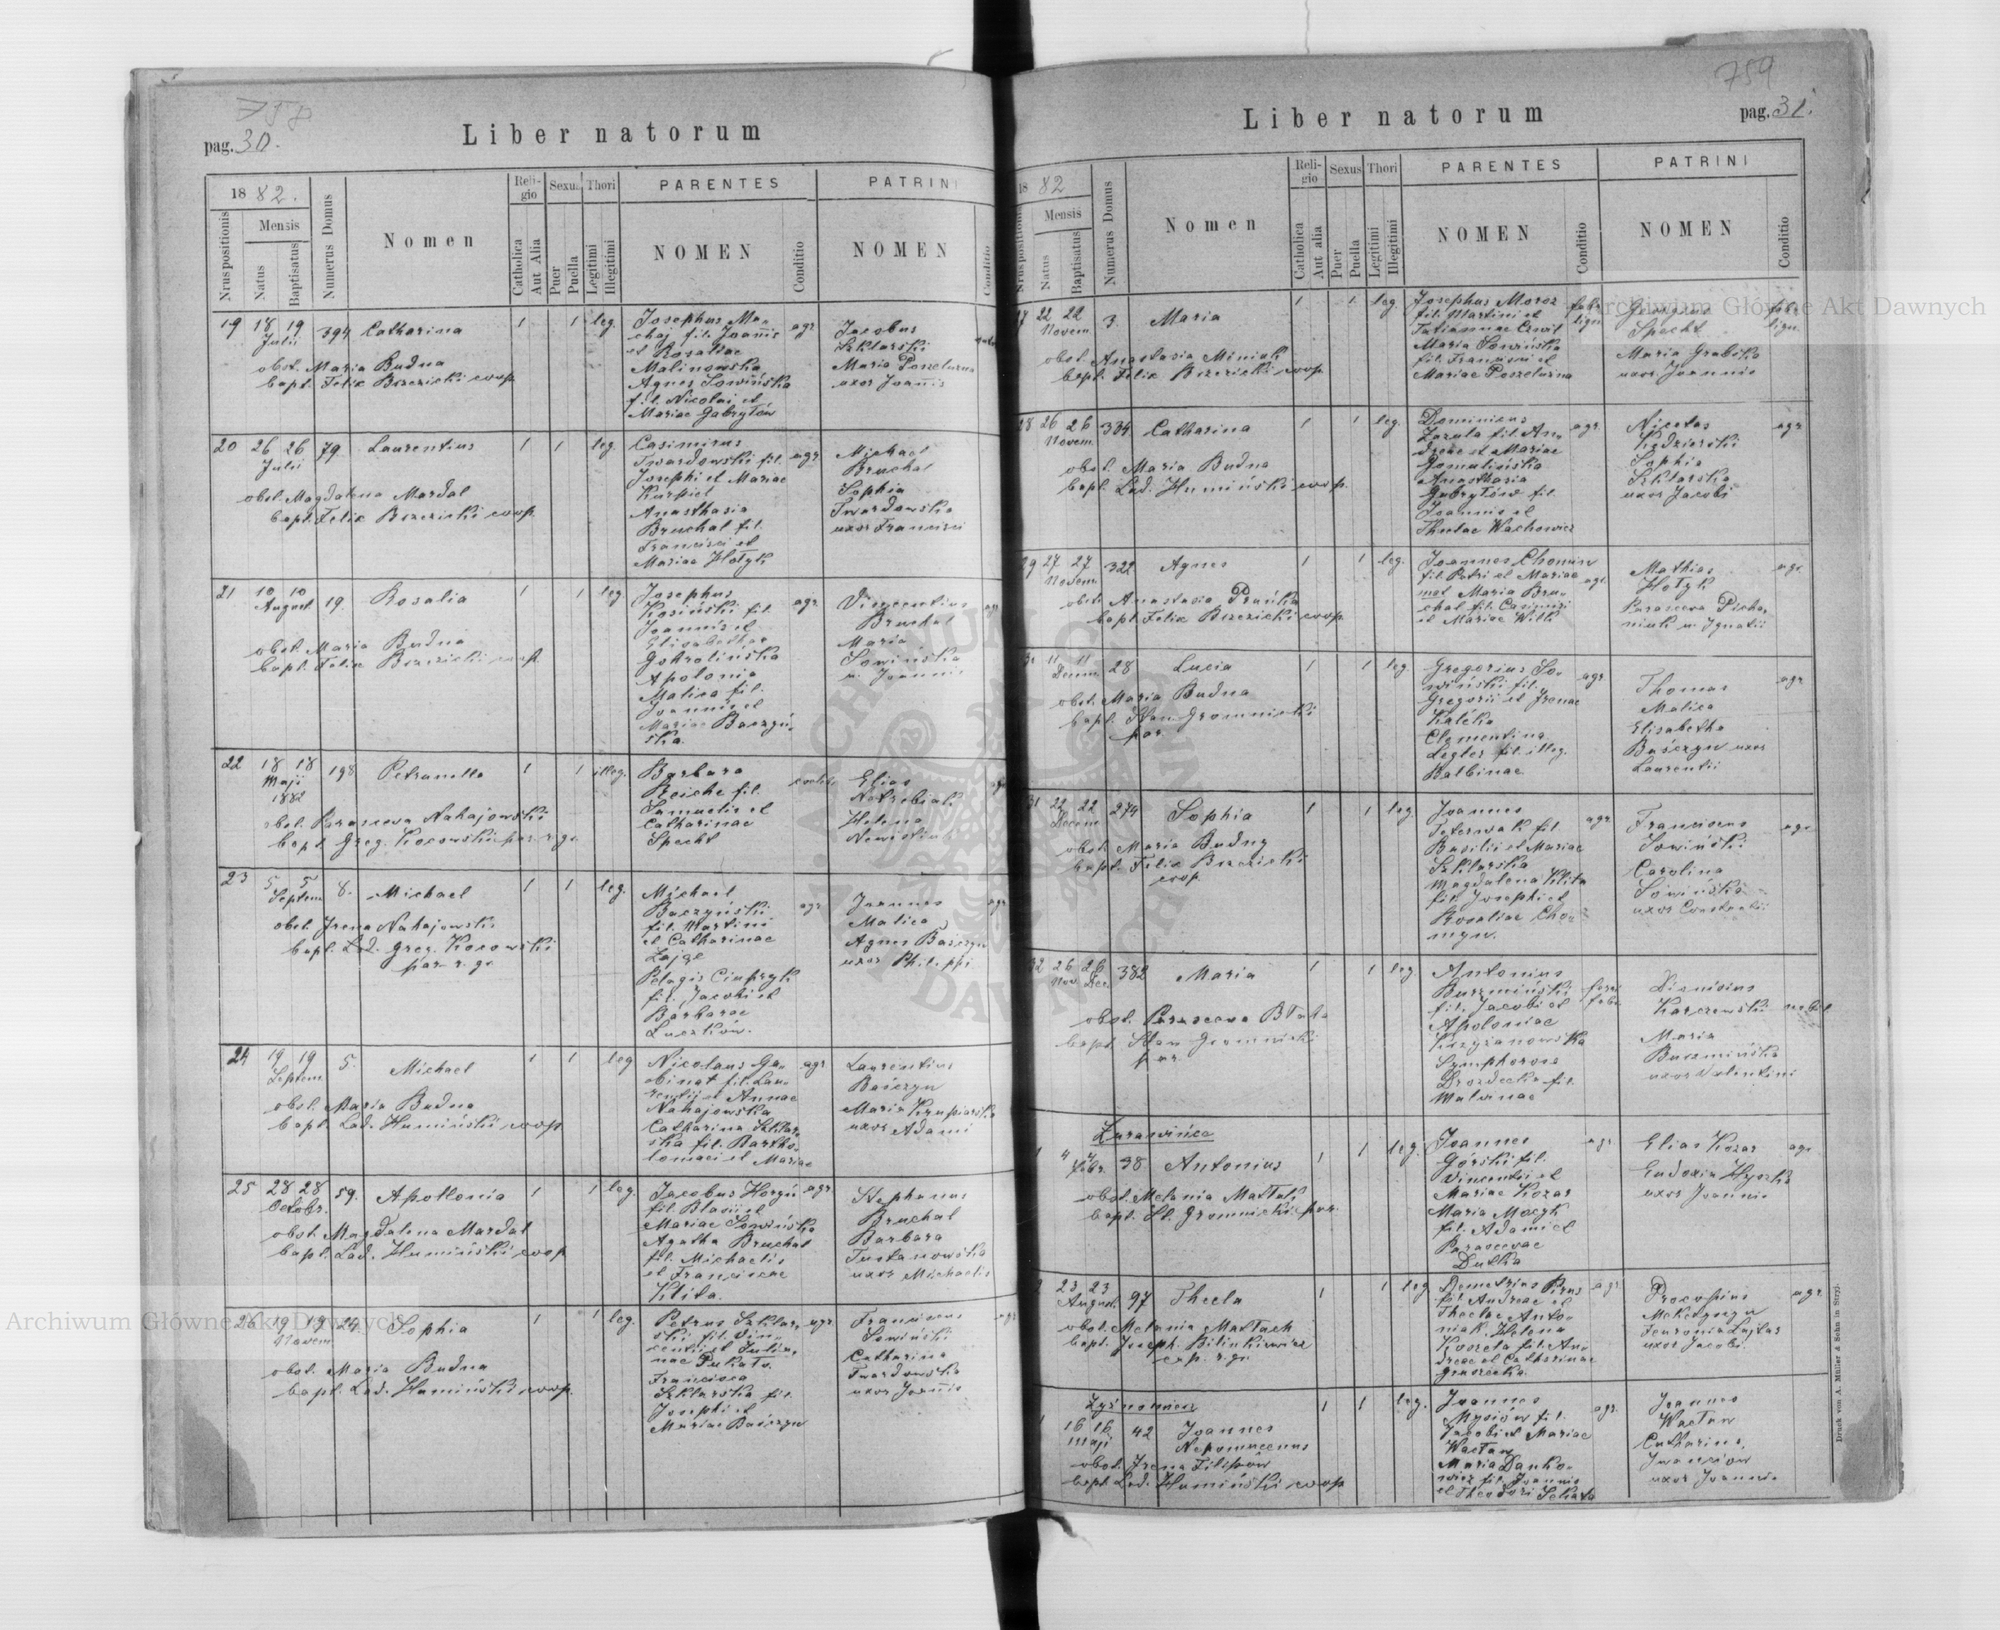 758
pag. 30.
Liber natorum
1882.
Nrus positionis
Mensis
Natus
Baptisatus
Numerus Domus
Nomen
Religio
Catholica
Aut Alia
Sexus
Puer
Puella
Thori
Legitimi
Illegitimi
PARENTES
NOMEN
Conditio
PATRINI
NOMEN
Conditio
19 18 19 394 Catharina 1 1 leg.
Julii
obst. Maria Budna
bapt. Felix Brzezicki coop.
Josephus Ma-
chaj fil. Joannis
et Rosaliae
Malinowska
Agnes Sowińska
fil. Nicolai et
Mariae Gabryłów
agr.
Jacobus
Szklarski
Maria Poszelużna
uxor Joannis
20 26 26 79. Laurentius 1 1 leg.
Julii
obst. Magdalena Mardal
bapt. Felix Brzezicki coop.
Casimirus
Twardowski fil.
Josephi et Mariae
Kurpiel
Anasthasia
Bruchal fil.
Francisci et
Mariae Hołyk
agr.
Michael
Bruchal
Sophia
Twardowska
uxor Francisci
21 10 10 19. Rosalia 1 1 leg.
August.
obst. Maria Budna
bapt. Felix Brzezicki coop.
Josephus
Kosiński fil.
Joannis et
Elisabethae
Gottolińska
Apolonia
Malica fil.
Joannis et
Mariae Baczyń-
ska.
agr.
Vincentius
Bruchal
Maria
Sowińska
u. Joannis
agr.
22 18 18 198 Petronella 1 1 illeg.
Maji
1882
obst. Parasceva Nahajowski
bapt. Greg. Kocowski par. r. gr.
Barbara
Reiche fil.
Samuelis et
Catharinae
Specht
Elias
Helena
23 5 5 8. Michael 1 1 leg.
Septem.
obst. Irena Nahajowska
bapt. Lad. Greg. Kocowski
par. r. gr.
Michael
Baczyński
fil. Martini
et Catharinae
Zając
Pelagia Ciupryk
fil. Jacobi et
Barbarae
Luczków.
agr.
Joannes
Malica
Agnes Baśczyn
uxor Philippi
agr.
24 19 19 5. Michael 1 1 leg
Septem.
obst. Maria Budna
bapt. Lad. Humiński coop.
Nicolaus Ga-
binat fil. Lau-
rentii et Annae
Nahajowska
Catharina Szklar-
ska fil. Bartho-
lomaei et Mariae
agr.
Laurentius
Baśczyn
Maria Krupiarska
uxor Adami
25 28 28 59. Apollonia 1 1 leg.
Octobr.
obst. Magdalena Mardal
bapt. Lad. Humiński coop.
Jacobus Horyń
fil. Blasii et
Mariae Sowińska
Agatha Bruchal
fil. Michaelis
et Franciscae
Klita.
agr.
Stephanus
Bruchal
Barbara
Tustanowska
uxor Michaelis
26 19 19 24. Sophia 1 1 leg.
Novem.
obst. Maria Budna
bapt. Lad. Humiński coop.
Petrus Szklar-
ski fil. Vin-
centii et Julia-
nae Pukało.
Francisca
Szklarska fil.
Josephi et
Mariae Baśczyn
agr.
Franciscus
Sowiński
Catharina
Twardowska
uxor Joannis
agr.
759
pag. 31.
Liber natorum
1882
Nrus positionis
Mensis
Natus
Baptisatus
Numerus Domus
Nomen
Religio
Catholica
Aut alia
Sexus
Puer
Puella
Thori
Legitimi
Illegitimi
PARENTES
NOMEN
Conditio
PATRINI
NOMEN
Conditio
27 22 22 3. Maria 1 1 leg.
Novem.
obst. Anastasia Miniuk
bapt. Felix Brzezicki coop.
Josephus Moroz
fil. Martini et
Tatiannae Cwil
Maria Sowińska
fil. Francisci et
Mariae Poszelużna
faber
lign.
Georgius
Specht
Maria Grabska
uxor Joannis
faber
lign.
28 26 26 334 Catharina 1 1 leg.
Novem.
obst. Maria Budna
bapt. Lad. Humiński coop.
Dominicus
Zazula fil. An-
dreae et Mariae
Gomulińska
Anasthasia
Gabryłów fil.
Joannis et
Theclae Wachowicz
agr.
Nicetas
Kędzierski
Sophia
Szklarska
uxor Jacobi
agr.
29 27 27 322 Agnes 1 1 leg.
Novem.
obst. Anastasia Pruńka
bapt. Felix Brzezicki coop.
Joannes Chomin
fil. Petri et Mariae
mat. Maria Bru-
chal fil. Casimiri
et Mariae Wilk
agr.
Mathias
Hołyk
Parasceva Picho-
niuk u. Ignatii
agr.
30 11 11 28 Lucia 1 1 leg.
Decem.
obst. Maria Budna
bapt. Stan. Gromnicki
par.
Gregorius So-
wiński fil.
Gregorii et Irenae
Kalčka
Clementina
Legler fil. illeg.
Balbinae
agr.
Thomas
Malica
Elisabetha
Baśczyn uxor
Laurentii
agr.
31 22 22 274 Sophia 1 1 leg.
Decem.
obst. Maria Budny
bapt. Felix Brzezicki
coop.
Joannes
Teterwak fil.
Basilii et Mariae
Szklarska
Magdalena Klita
fil. Josephi et
Rosaliae Cho-
myn.
agr.
Franciscus
Sowiński
Carolina
Sowińska
uxor Constantii
agr.
32 26 26 382 Maria 1 1 leg.
Nov. Dec.
obst. Parasceva Błaha
bapt. Stan Gromnicki
par.
Antonius
Burzmiński
fil. Jacobi et
Apoloniae
Krzyżanowska
Symphorosa
Drozdecka fil.
Malvinae
Dionisius
Karczewski
Maria
Burzmińska
uxor Valentini
Żurawińce
1 4 4 38 Antonius 1 1 leg.
Febr.
obst. Melania Maxtuk
bapt. St. Gromnicki par.
Joannes
Górski fil.
Vincentii et
Mariae Kozar
Maria Maczyk
fil. Adami et
Parascevae
Dutka
agr
Elias Kozar
Eudoxia Hyszka
uxor Joannis
agr.
2 23 23 97 Thecla 1 1 leg
August.
obst. Melania Maxtach
bapt. Joseph. Bilinkiewicz
cap. r. gr.
Demetrius Pirus
fil. Andreae et
Theclae Anto-
niak. Helena
Kvoreta fil. An-
dreae et Catharinae
agr.
Procopius
Mekedyczyn
Feuronia Lajtar
uxor Jacobi.
agr.
1 16 16 42 Joannes 1 1 leg.
Maji Nepomucenus
obst. Irena Filipów
bapt. Lad. Humiński coop.
Joannes
Mysiów fil.
Jacobi et Mariae
Wacław
Maria Danko-
wicz fil. Joannis
et Theodori Sekata
agr.
Joannes
Wacław
Catharina
Iwanciow
uxor Joannis
Druck von A. Müller & Sohn in Stryj.
Archiwum Główne Akt Dawnych
Archiwum Główne Akt Dawnych
ARCHIWUM GŁÓWNE AKT DAWNYCH